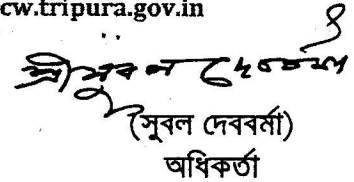 cw.tripura.gov.in
শ্রী সুবল দেববর্মা
(সুবল দেববর্মা)
অধিকর্তা